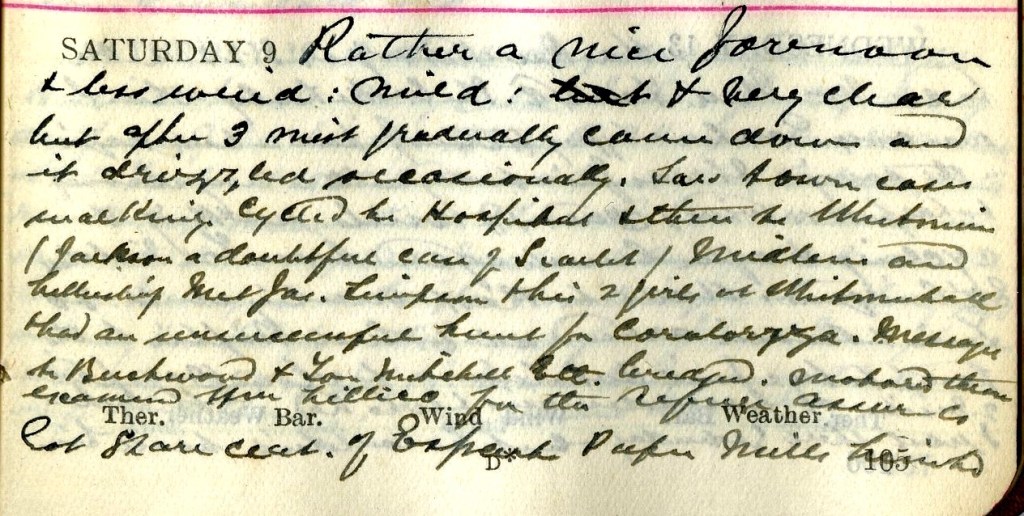 SATURDAY 9 Rather a nice forenoon
& less wind: mild: & very clear
but after 3 mist gradually came down and
it drizzled occasionally. Saw town cases
walking. Cycled to Hospital & then to Whitmuir
(Jackson a doubtful case of Scarlet) Midlem and
Met Jas. Simpson & his 2 girls at Whitmuirhall
& had an unsuccessful hunt for Coraloryza. Message
to Buckwood & Tom Mitchell
examined for the Refuge Assur Co
Ther. Bar. Wind Weather
Got Share cert. of Esparto Paper Mills Limited
D* 105